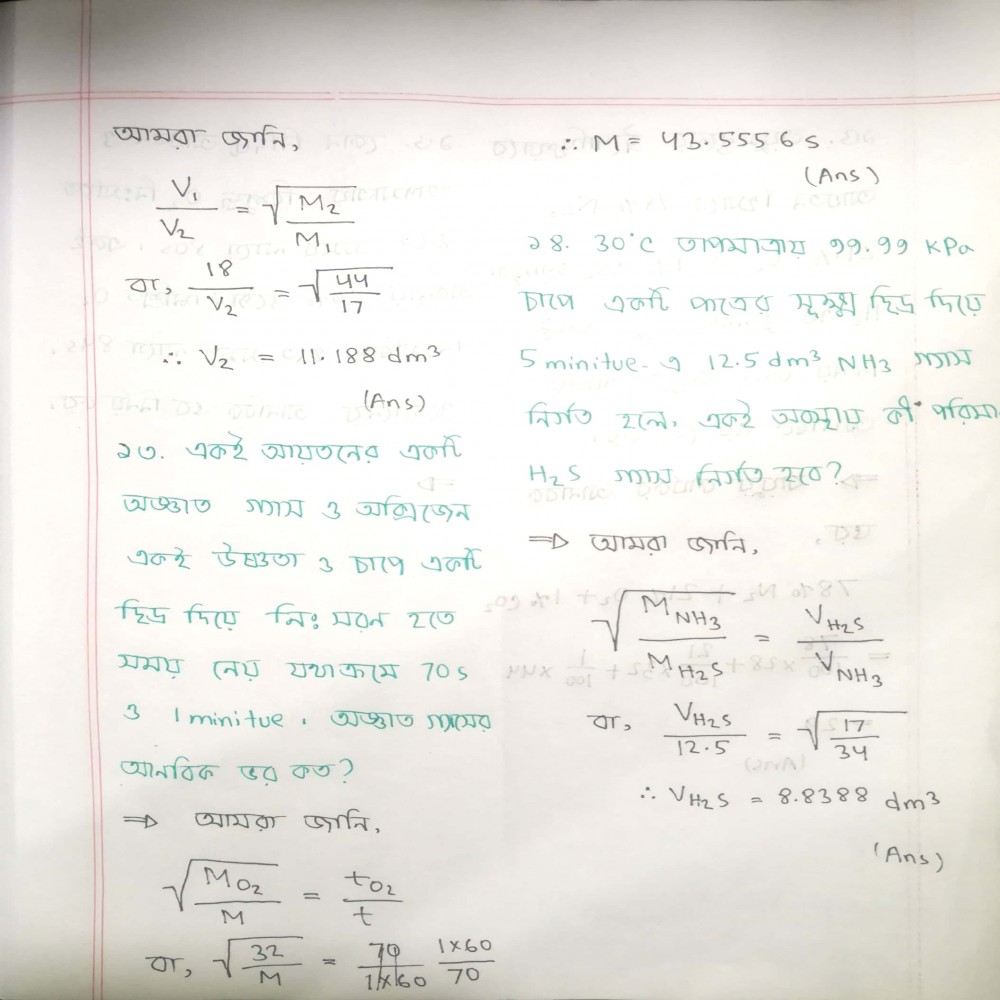 আমরা জানি,
V₁/V₂ = √(M₂/M₁)
বা, 18/V₂ = √(44/17)
∴ V₂ = 11.188 dm³
(Ans)
১৩. একই আয়তনের একটি
অজ্ঞাত গ্যাস ও অক্সিজেন
একই উষ্ণতা ও চাপে একটি
ছিদ্র দিয়ে নিঃসরন হতে
সময় নেয় যথাক্রমে 70 s
ও 1 minitue. অজ্ঞাত গ্যাসের
আনবিক ভর কত?
⇒ আমরা জানি,
√(M_O₂/M) = t_O₂/t
বা, √(32/M) = 70/1×60 1×60/70
∴ M = 43.5556 s
(Ans)
১৪. 30°C তাপমাত্রায় 99.99 KPa
চাপে একটি পাত্রের সূক্ষ্ম ছিদ্র দিয়ে
5 minitue এ 12.5 dm³ NH₃ গ্যাস
নির্গত হলে, একই অবস্থায় কী পরিমা
H₂S গ্যাস নির্গত হবে?
⇒ আমরা জানি,
√(M_NH₃/M_H₂S) = V_H₂S/V_NH₃
বা, V_H₂S/12.5 = √(17/34)
∴ V_H₂S = 8.8388 dm³
(Ans)